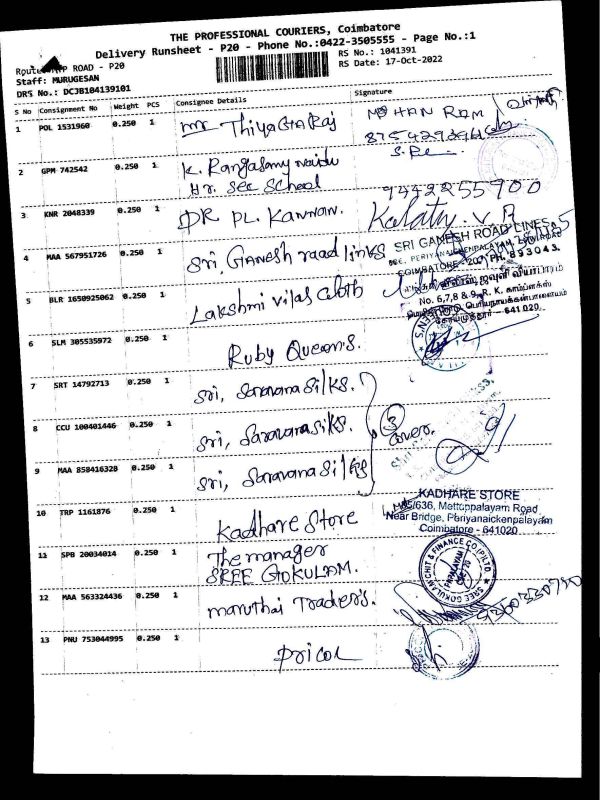 THE PROFESSIONAL COURIERS, Coimbatore
Delivery Runsheet - P20 - Phone No.:0422-3505555 - Page No.:1
ROAD - P20
RS No.: 1041391
Staff: MURUGESAN
RS Date: 17-Oct-2022
DRS No.: DC3B104139101
S No Consignment No Weight PCS Consignee Details Signature
1 POL 1531960 0.250 1 Mr Thiyagaraj MOHAN RAM
2 GPM 742542 0.250 1 K. Rangasamy Naidu
Hr. Sec School
9442255900
3 KNR 2048339 0.250 1 DR PL. Kannan.
4 MAA 567951726 0.250 1 Sri, Ganesh road links
SRI GANESH ROAD LINES
COIMBATORE - 20. PH. 893043.
5 BLR 1650925062 0.250 1 Lakshmi vilas cloth
No. 6,7,8 & 9, R. K. காம்ப்ளக்ஸ்
பெரியநாயக்கன்பாளையம்
கோயமுத்தூர் - 641 020.
6 SLM 305535972 0.250 1 Ruby Queen's.
7 SRT 14792713 0.250 1 Sri, Saravana Silks.
8 CCU 100401446 0.250 1 Sri, Saravana Silks.
3 cover.
9 MAA 858416328 0.250 1 Sri, Saravana Silks
10 TRP 1161876 0.250 1 Kadhare Store
KADHARE STORE
5/636, Mettuppalayam Road
Near Bridge, Periyanaickenpalayam
Coimbatore - 641020
11 SPB 20034014 0.250 1 The manager
SREE GOKULAM.
SREE GOKULAM CHIT & FINANCE CO (P) LTD.
12 MAA 563324436 0.250 1 maruthai Traders.
13 PNU 753044995 0.250 1 pricol